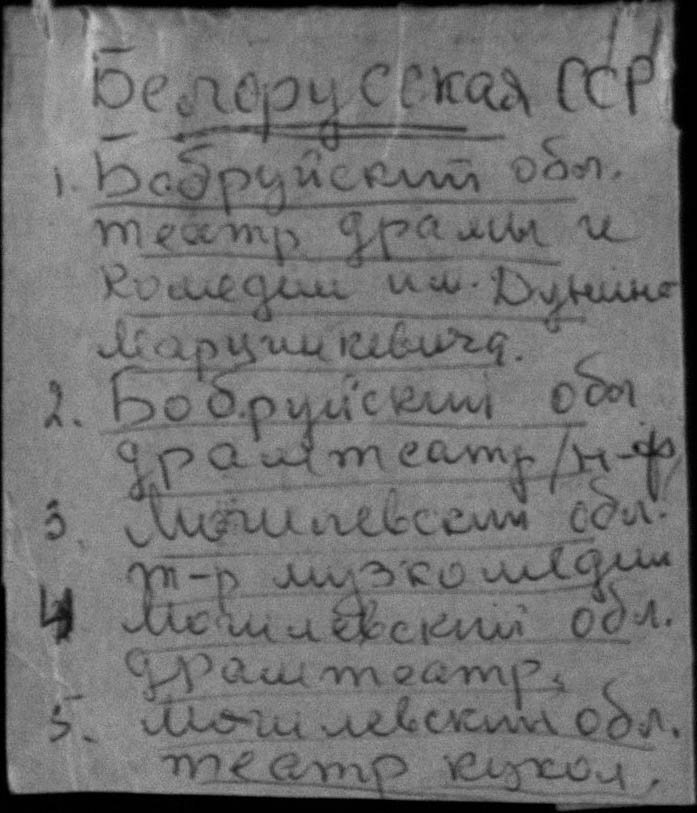 Белорусская ССР
1. Бобруйский обл.
театр драмы и
комедии им. Дунина
Марцинкевича.
2. Бобруйский обл
драмтеатр /н-ф/
3. Могилевский обл.
т-р музкомедии
4 Могилевский обл.
драмтеатр.
5. Могилевский обл.
театр кукол.